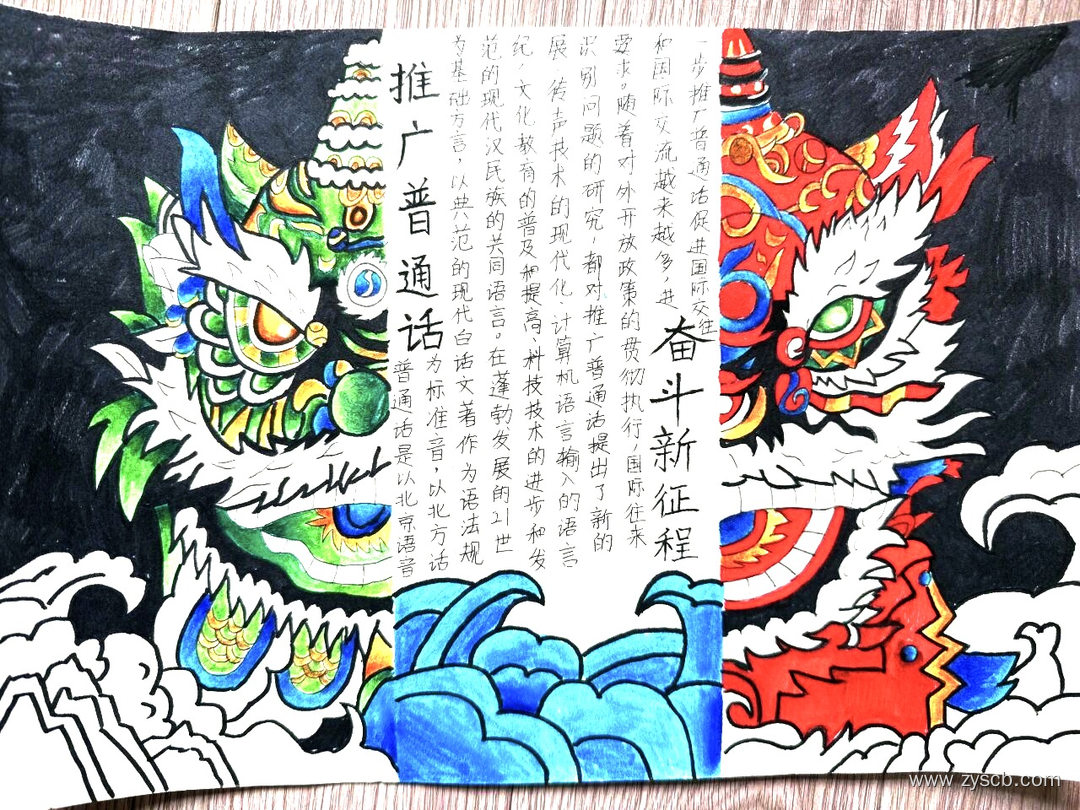 推广普通话
普通话是以北京语音
为标准音,以北方话
为基础方言,以典范的现代白话文著作为语法规
范的现代汉民族的共同语言。在蓬勃发展的21世
纪,文化教育的普及和提高、科技技术的进步和发
展,传声技术的现代化,计算机语言输入的语言
识别问题的研究,都对推广普通话提出了新的
要求。随着对外开放政策的贯彻执行,国际往来
和国际交流越来越多,进
一步推广普通话促进国际交往
奋斗新征程
www.zyscb.com